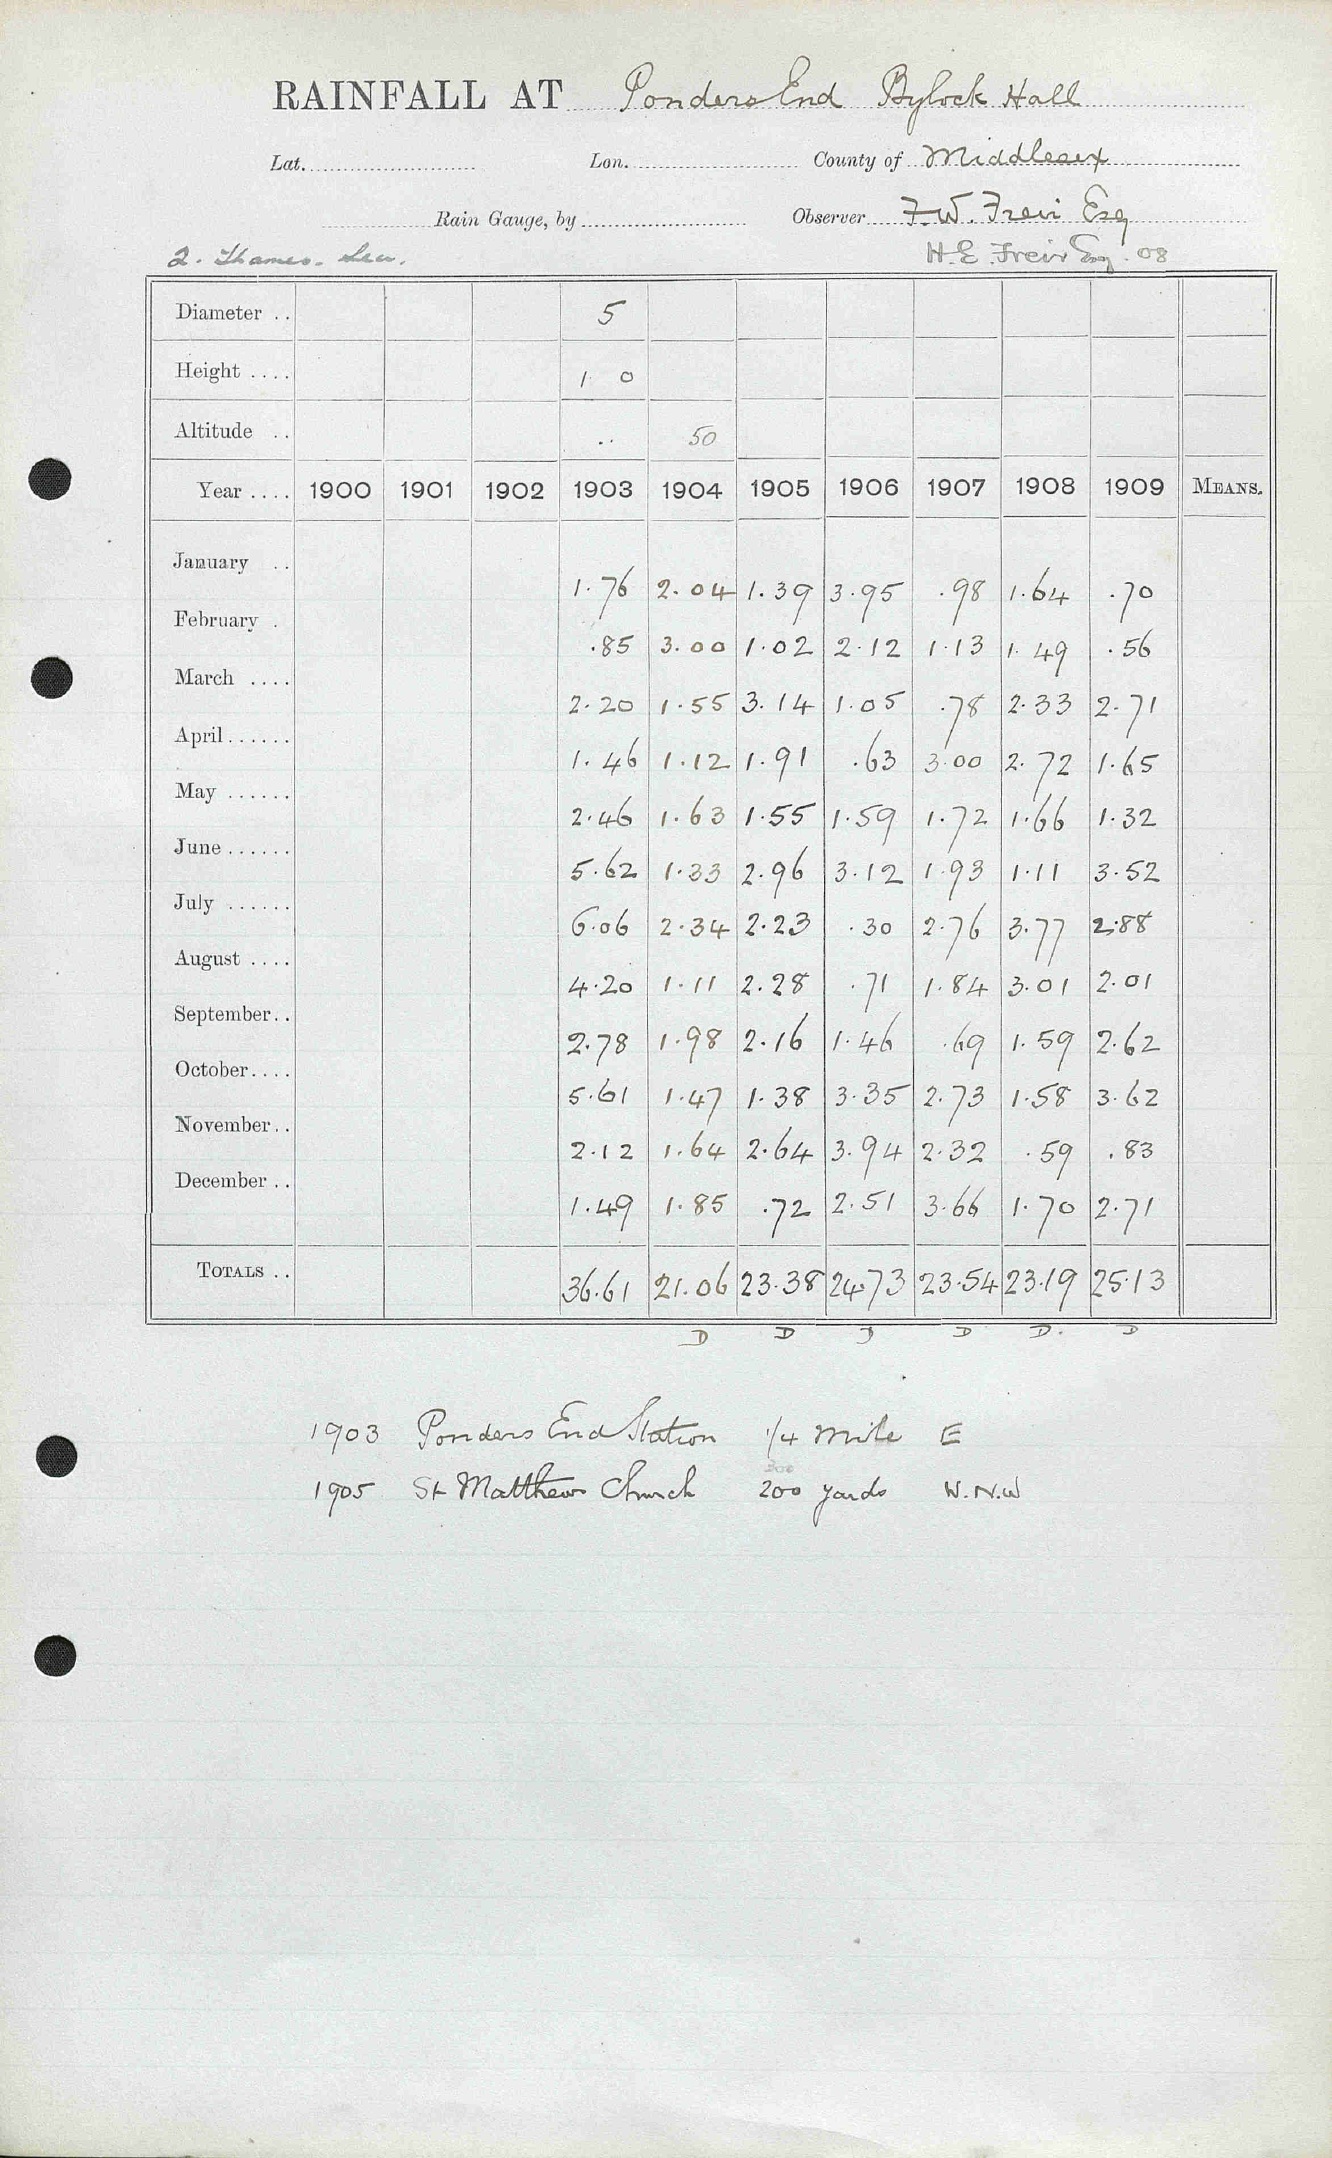 RAINFALL AT Ponders End Bylock Hall
Lat. Lon. County of Middlesex
Rain Gauge, by Observer F.W. Freir Esq
2. Thames. Lea. H.E. Freir Esq. 08
Diameter .. 5
Height .... 1 0
Altitude .. .. 50
Year .... 1900 1901 1902 1903 1904 1905 1906 1907 1908 1909 MEANS.
January .. 1.76 2.04 1.39 3.95 .98 1.64 .70
February . .85 3.00 1.02 2.12 1.13 1.49 .56
March .... 2.20 1.55 3.14 1.05 .78 2.33 2.71
April...... 1.46 1.12 1.91 .63 3.00 2.72 1.65
May ...... 2.46 1.63 1.55 1.59 1.72 1.66 1.32
June ...... 5.62 1.33 2.96 3.12 1.93 1.11 3.52
July ...... 6.06 2.34 2.23 .30 2.76 3.77 2.88
August .... 4.20 1.11 2.28 .71 1.84 3.01 2.01
September.. 2.78 1.98 2.16 1.46 .69 1.59 2.62
October.... 5.61 1.47 1.38 3.35 2.73 1.58 3.62
November.. 2.12 1.64 2.64 3.94 2.32 .59 .83
December .. 1.49 1.85 .72 2.51 3.66 1.70 2.71
TOTALS .. 36.61 21.06 23.38 24.73 23.54 23.19 25.13
D D D D D. D
1903 Ponders End Station 1/4 mile E
300
1905 St Matthews Church 200 yards W.N.W